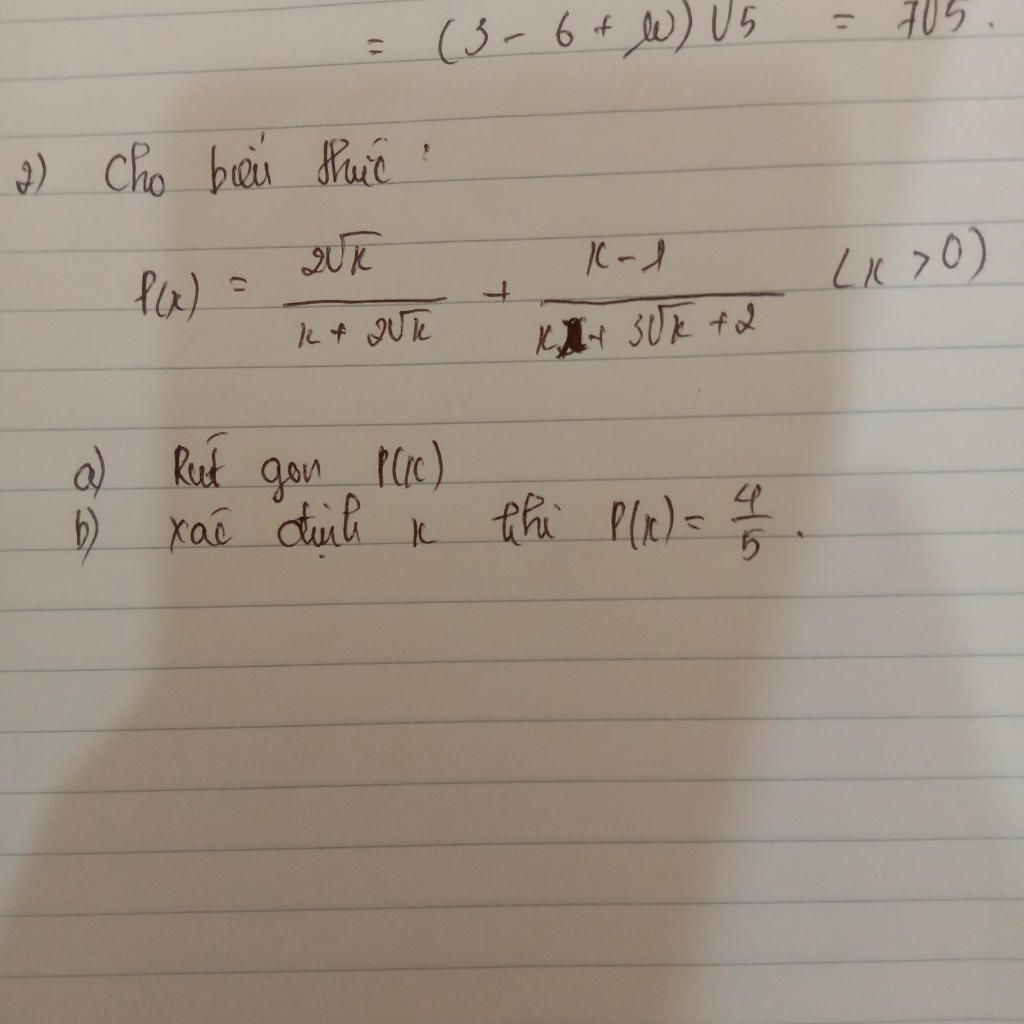 = (3 - 6 + 10) √5 = 7√5.
2) Cho biểu thức :
P(x) = 2√x / (x + 2√x) + (x - 1) / (x + 3√x + 2) (x > 0)
a) Rút gọn P(x)
b) xác định x thì P(x) = 4/5.